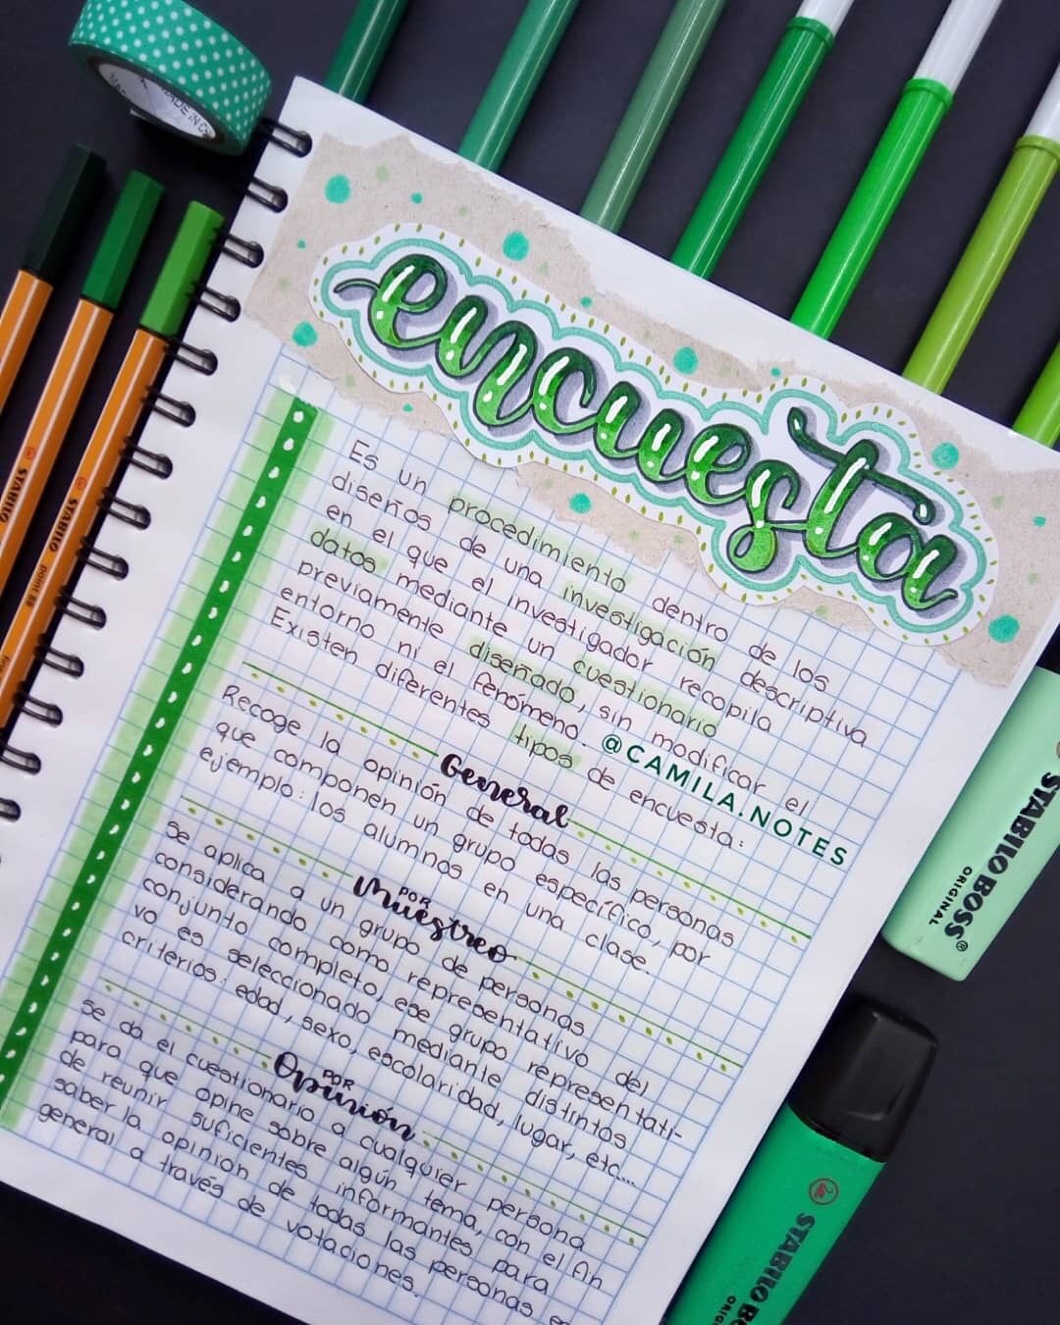 encuesta
Es un procedimiento dentro de los
diseños de una investigación descriptiva
en el que el investigador recopila
datos mediante un cuestionario
previamente diseñado, sin modificar el
entorno ni el fenómeno.
Existen diferentes tipos de encuesta:
@CAMILA.NOTES
General
Recoge la opinión de todas las personas
que componen un grupo específico, por
ejemplo: los alumnos en una clase.
POR
Muestreo
Se aplica a un grupo de personas
considerando como representativo del
conjunto completo, ese grupo representati-
vo es seleccionado mediante distintos
criterios: edad, sexo, escolaridad, lugar, etc...
POR
Opinión
Se da el cuestionario a cualquier persona
para que opine sobre algún tema, con el fin
de reunir suficientes informantes para
saber la opinión de todas las personas en
general a través de votaciones.
STABILO
STABILO point 88
STABILO BOSS®
ORIGINAL
STABILO BO
MADE IN